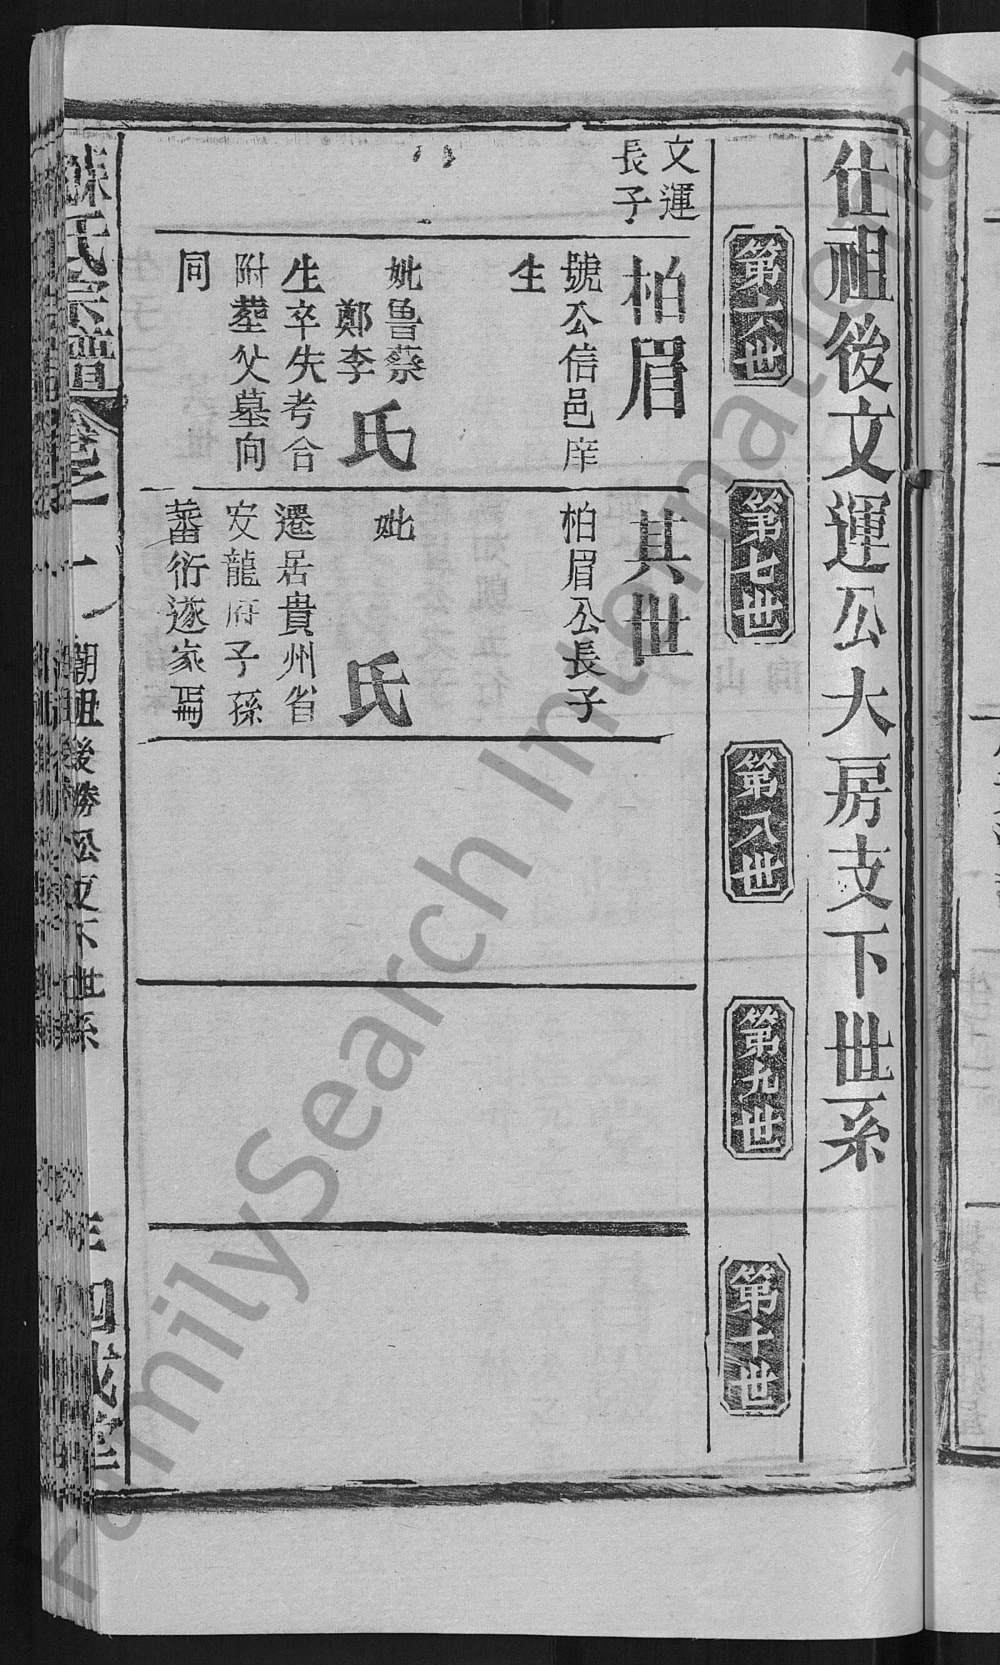 仕祖後文運公大房支下世系
第六世
第七世
第八世
第九世
第十世
文運
長子
柏眉
號公信邑庠
生
妣魯蔡
鄭李
氏
生卒失考合
附塟父墓向
同
其世
柏眉公長子
妣
氏
遷居貴州省
安龍府子孫
蕃衍遂家焉
蘇氏宗譜
卷之一
朝祖後勝公支下世系
FamilySearch International